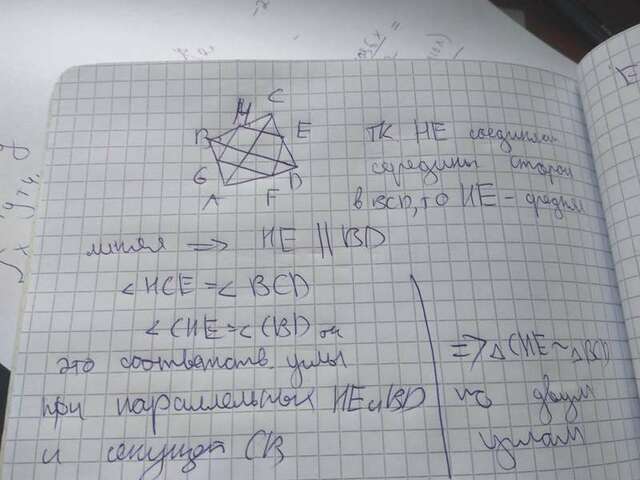 C
H
B
E
G
D
A
F
тк НЕ соединяет
середины сторон
в BCD, то НЕ - средняя
линия => HE || BD
< HCE = < BCD
< CHE = < CBD
это соответств. углы
при параллельных HE и BD
и секущей CB
=> △ CHE ~ △ BCD
по двум
углам